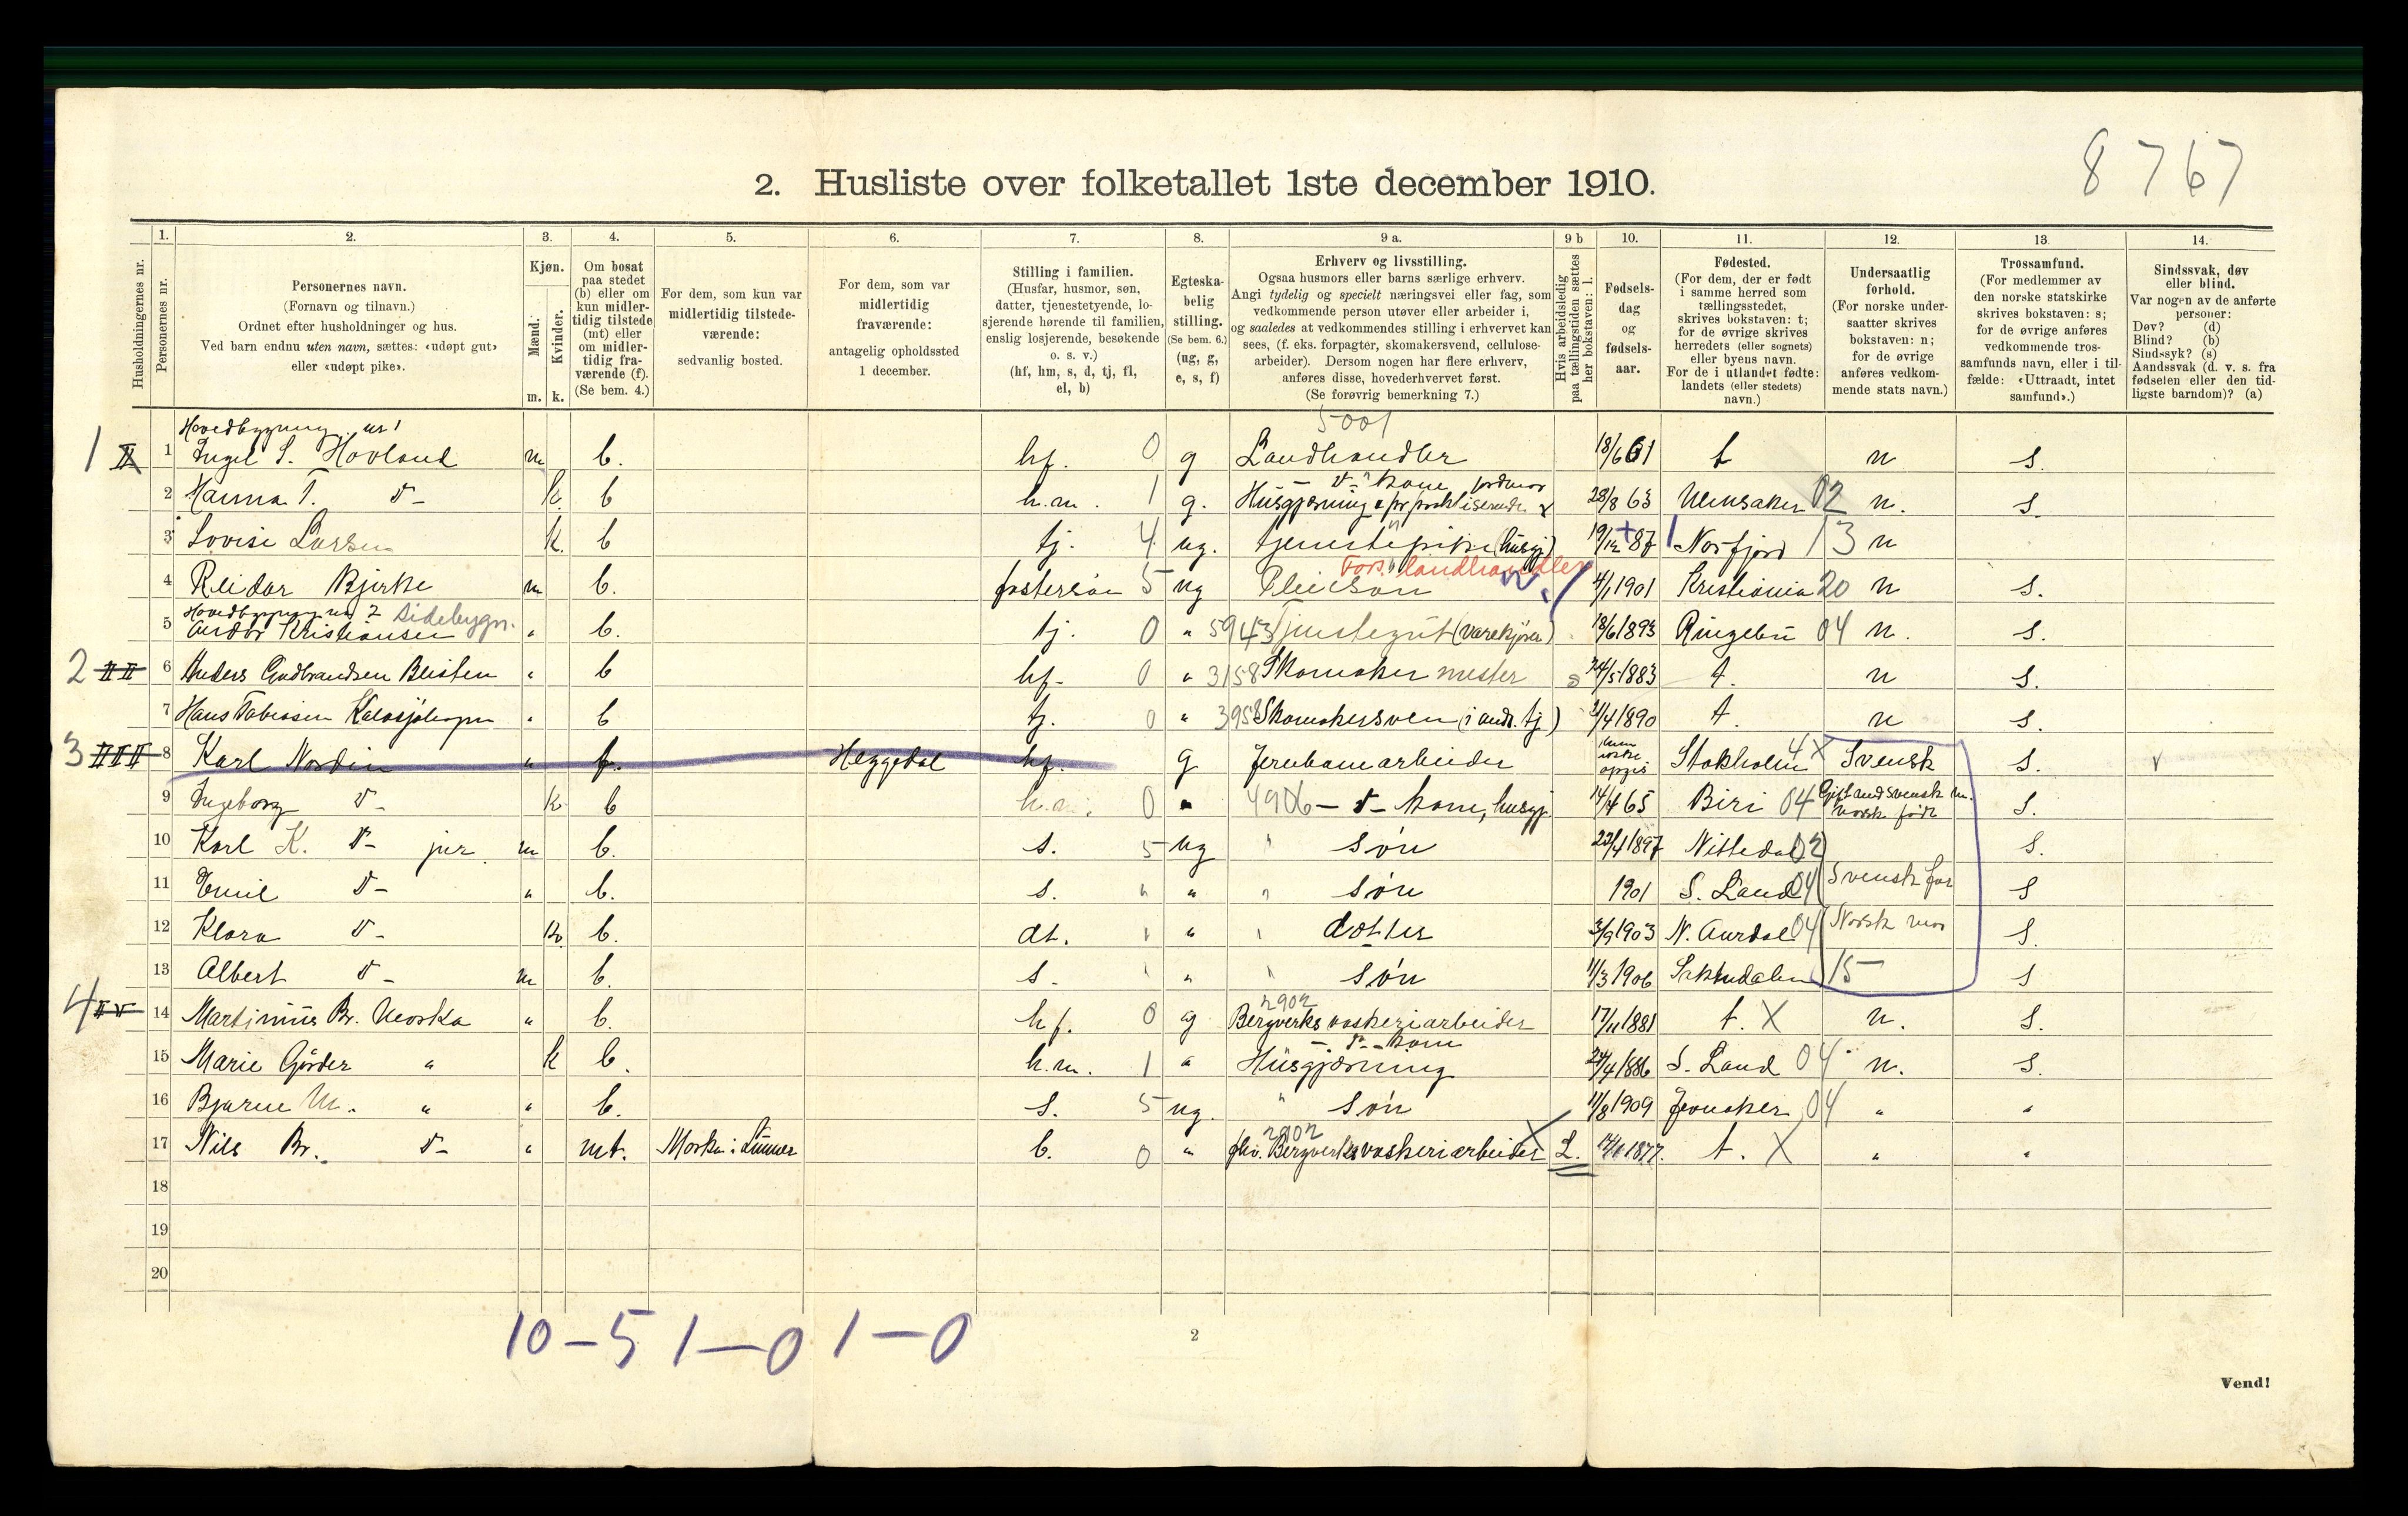 8767
2. Husliste over folketallet 1ste december 1910.
1. 2. 3. 4. 5. 6. 7. 8. 9 a. 9 b 10. 11. 12. 13. 14.
Husholdningernes nr.
Personernes nr.
Personernes navn.
(Fornavn og tilnavn.)
Ordnet efter husholdninger og hus.
Ved barn endnu uten navn, sættes: «udøpt gut»
eller «udøpt pike».
Kjøn.
Mænd.
Kvinder.
m. k.
Om bosat
paa stedet
(b) eller om
kun midler-
tidig tilstede
(mt) eller
om midler-
tidig fra-
værende (f).
(Se bem. 4.)
For dem, som kun var
midlertidig tilstede-
værende:
sedvanlig bosted.
For dem, som var
midlertidig
fraværende:
antagelig opholdssted
1 december.
Stilling i familien.
(Husfar, husmor, søn,
datter, tjenestetyende, lo-
sjerende hørende til familien,
enslig losjerende, besøkende
o. s. v.)
(hf, hm, s, d, tj, fl,
el, b)
Egteska-
belig
stilling.
(Se bem. 6.)
(ug, g,
e, s, f)
Erhverv og livsstilling.
Ogsaa husmors eller barns særlige erhverv.
Angi tydelig og specielt næringsvei eller fag, som
vedkommende person utøver eller arbeider i,
og saaledes at vedkommendes stilling i erhvervet kan
sees, (f. eks. forpagter, skomakersvend, cellulose-
arbeider). Dersom nogen har flere erhverv,
anføres disse, hovederhvervet først.
(Se forøvrig bemerkning 7.)
Hvis arbeidsledig
paa tællingstiden sættes
her bokstaven: l.
Fødsels-
dag
og
fødsels-
aar.
Fødested.
(For dem, der er født
i samme herred som
tællingsstedet,
skrives bokstaven: t;
for de øvrige skrives
herredets (eller sognets)
eller byens navn.
For de i utlandet fødte:
landets (eller stedets)
navn.)
Undersaatlig
forhold.
(For norske under-
saatter skrives
bokstaven: n;
for de øvrige
anføres vedkom-
mende stats navn.)
Trossamfund.
(For medlemmer av
den norske statskirke
skrives bokstaven: s;
for de øvrige anføres
vedkommende tros-
samfunds navn, eller i til-
fælde: «Uttraadt, intet
samfund».)
Sindssvak, døv
eller blind.
Var nogen av de anførte
personer:
Døv? (d)
Blind? (b)
Sindssyk? (s)
Aandssvak (d. v. s. fra
fødselen eller den tid-
ligste barndom)? (a)
Hovedbygning nr 1 5001
1 II 1 Ingel S. Hovland m b. hf. 0 g Landhandler 18/6 61 t n s.
— d — kone jordmor
2 Hanna T. d- k. b h.m. 1 g. Husgjærning 28/8 63 Ullensaker 02 n. s.
3 Lovise Larsen k. b tj. 4 ug. tjenestepike (husgj) 19/12 87 13 n
Fors. landhandler
4 Reidar Bjerke m b. fostersøn 5 ug Pleiesøn 4/1 1901 Kristiania 20 n s.
Hovedbygning no 2 Sidebygn.
5 Kristiansen " b. tj. 0 " 5943 Tjenestegut (varekjører) 18/6 1893 Ringebu 04 n. s.
2 II 6 Anders Gudbrandsen Beisten " b hf. 0 " 3158 Skomaker mester s 24/5 1883 t. n s.
7 Hans Tobiasen " b tj. 0 " 3958 Skomakersven (i andr. tj.) 3/4 1890 t. n s.
3 III 8 Karl Nordin " f. Heggedal hf. g Jernbanearbeider kun ikke opgis Stokholm 4 X Svensk s. v
9 Ingeborg d- k b h.m. 0 " 4906 — d — kone, husgj. 14/4 65 Biri 04 Gift med svensk m. norsk født s.
10 Karl K. d- jnr. m b. s. 5 ug " søn 23/1 1897 Nittedal 02 s.
11 Emil d- " b. s. " " " søn 1901 S. Land 04 Svensk far s
12 Klara d- k. b. dt. " " " dotter 3/9 1903 N. Aurdal 04 Norsk mor s.
13 Albert d- m b. s. " " " søn 11/3 1906 15 s
2902
4 IV 14 Martinius Br. Morka " b. hf. 0 g Bergverks vaskeriarbeider 17/11 1881 t. X n. s.
— d — kone
15 Marie Gjørder " k b. h.m. 1 " Husgjærning 24/4 1886 S. Land 04 n. s.
16 Bjarne M. " " b. s. 5 ug. " søn 11/8 1909 Jevnaker 04 " "
2902
17 Nils Br. d- " mt. Morka i Lunner b. 0 " fhv. Bergverksvaskeriarbeider L. 1877. t. X " "
18
19
20
10 – 5 1 – 0 1 – 0
2
Vend!